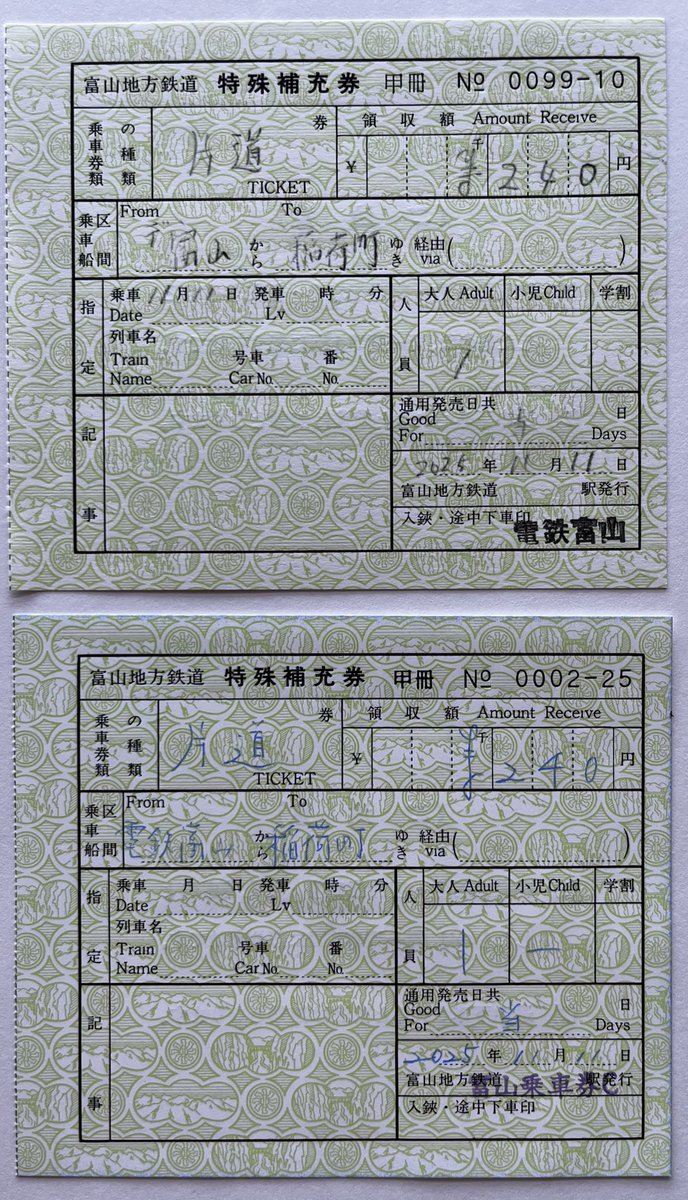 富山地方鉄道 特殊補充券 甲冊 № 0099-10
乗車券類の種類 片道 券 TICKET
領収額 Amount Receive
¥ 千 240 円
乗車船区間 From To
デ富山 から 稲荷町 ゆき 経由 via ( )
指定 乗車 11月11日 発車 時 分
Date Lv
列車名
Train 号車 番
Name Car No. No.
人員 大人 Adult 小児 Child 学割
1
記事
通用発売日共 日
Good
For 当 Days
2025年11月11日
富山地方鉄道 駅発行
入鋏・途中下車印
電鉄富山
富山地方鉄道 特殊補充券 甲冊 № 0002-25
乗車券類の種類 片道 券 TICKET
領収額 Amount Receive
¥ 千 240 円
乗車船区間 From To
電鉄富山 から 稲荷町 ゆき 経由 via ( )
指定 乗車 月 日 発車 時 分
Date Lv
列車名
Train 号車 番
Name Car No. No.
人員 大人 Adult 小児 Child 学割
1 —
記事
通用発売日共 日
Good
For 当 Days
2025年11月11日
富山地方鉄道 駅発行
富山乗車券C
入鋏・途中下車印